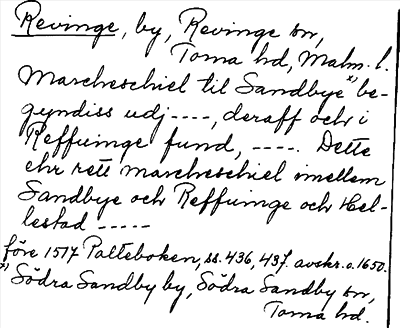 Revinge, by, Revinge sn,
Torna hd, Malm. l.
Marcheschiel til Sandbye x) be-
gyndiss udj ----, deraff och i
Reffuinge fund, ----. Dette
ehr rett marcheschiel imellem
Sandbye och Reffuinge och Hel-
lestad -----
före 1517 Palteboken, ss. 436, 437. avskr. o. 1650.
x) Södra Sandby by, Södra Sandby sn,
Torna hd.